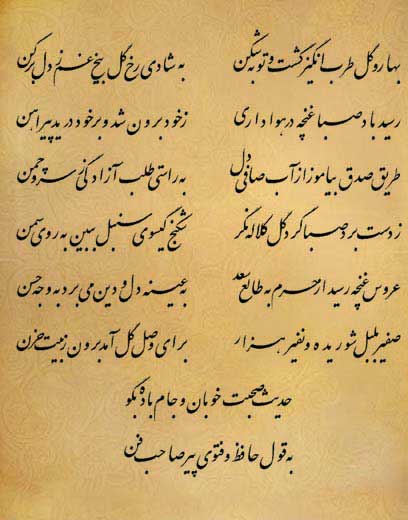 بهار و گل طرب انگیز گشت و توبه شکن به شادی رخ گل بیخ غم ز دل برکن
رسید باد صبا غنچه در هواداری ز خود برون شد و بر خود درید پیراهن
طریق صدق بیاموز از آب صافی دل به راستی طلب آزادگی ز سرو چمن
ز دست برد صبا گرد گل کلاله نگر شکنج گیسوی سنبل ببین به روی سمن
عروس غنچه رسید از حرم به طالع سعد به عینه دل و دین می برد به وجه حسن
صفیر بلبل شوریده و نفیر هزار برای وصل گل آمد برون ز بیت حزن
حدیث صحبت خوبان و جام باده بگو
به قول حافظ و فتوی پیر صاحب فن